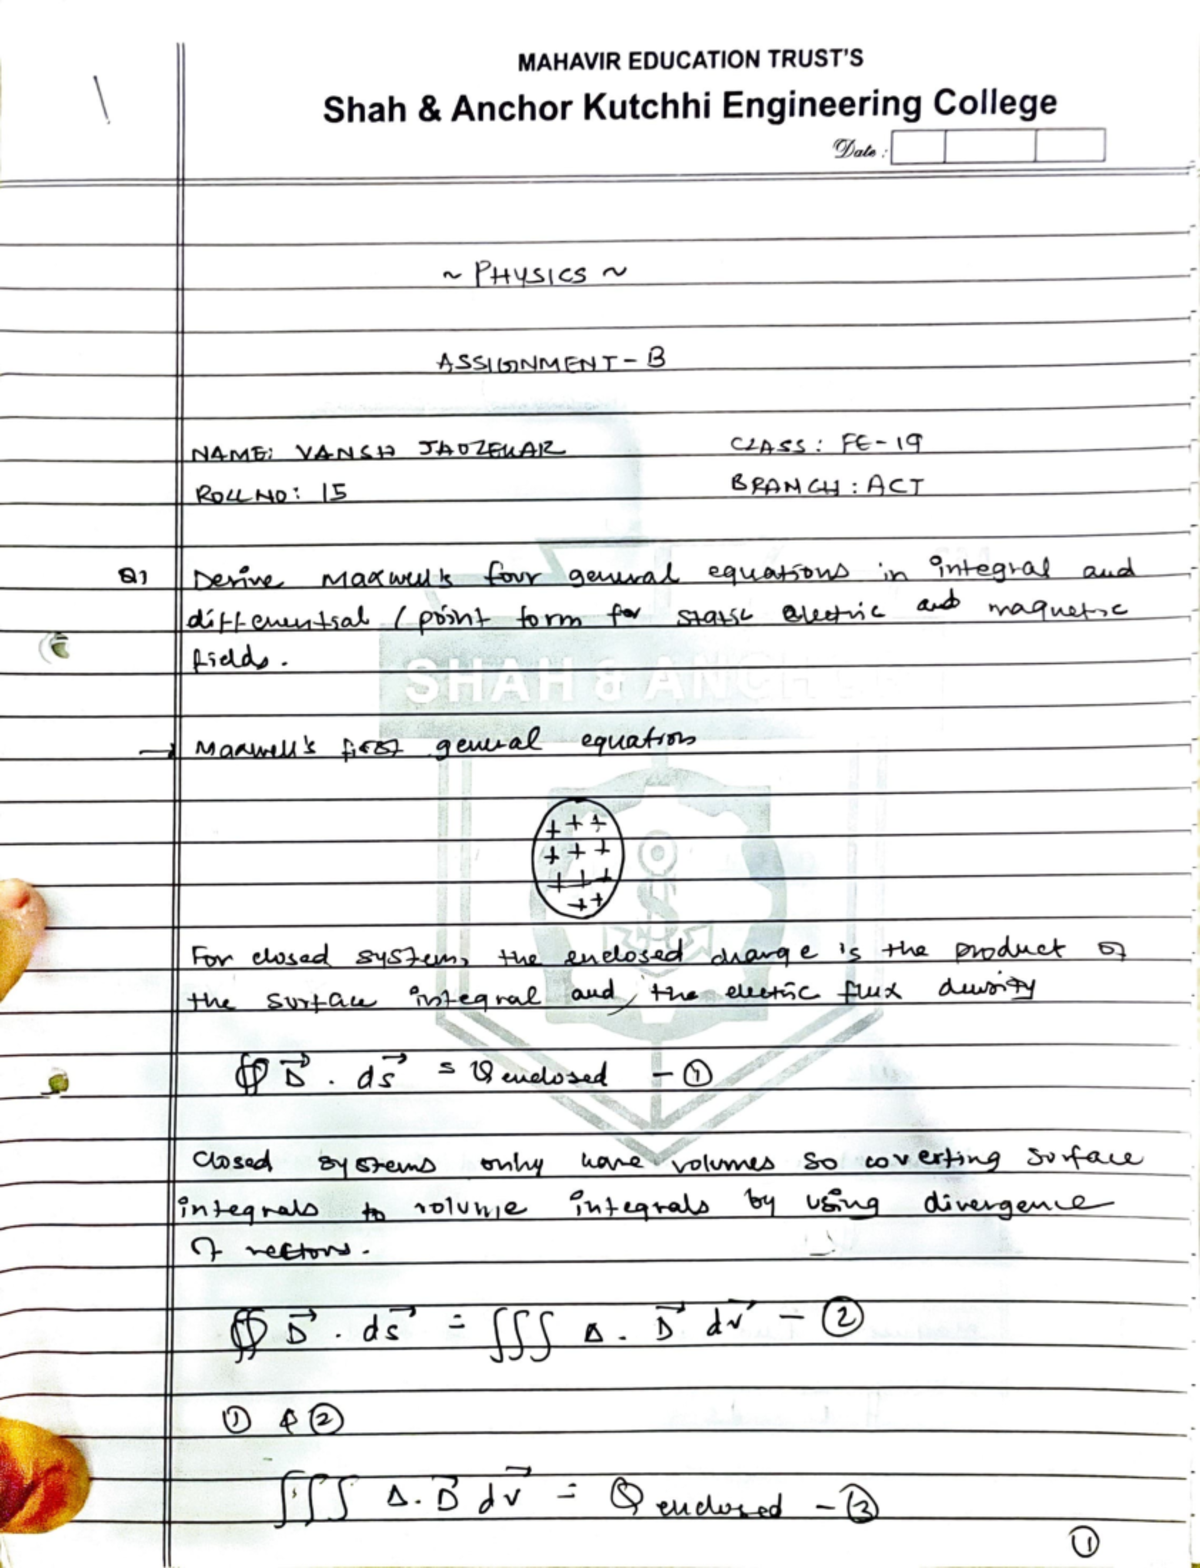 MAHAVIR EDUCATION TRUST'S
Shah & Anchor Kutchhi Engineering College
Date :
~ PHYSICS ~
ASSIGNMENT - B
NAME: VANSH CLASS : FE - 19
ROLL NO : 15 BRANCH : ACT
Q1 Derive Maxwell's four general equations in integral and
differential / point form for static electric and magnetic
fields.
SHAH & ANCHOR
→ Maxwell's first general equation
+ + +
+ + +
+ + +
+ +
For closed system, the enclosed charge is the product of
the surface integral and, the electric flux density
∯ D⃗ . ds⃗ = Q enclosed - ①
Closed systems only have volumes so coverting surface
integrals to volume integrals by using divergence
of vectors.
∯ D⃗ . ds⃗ = ∫∫∫ Δ . D⃗ dv⃗ - ②
① & ②
∫∫∫ Δ . D⃗ dv⃗ = Q enclosed - ③
①